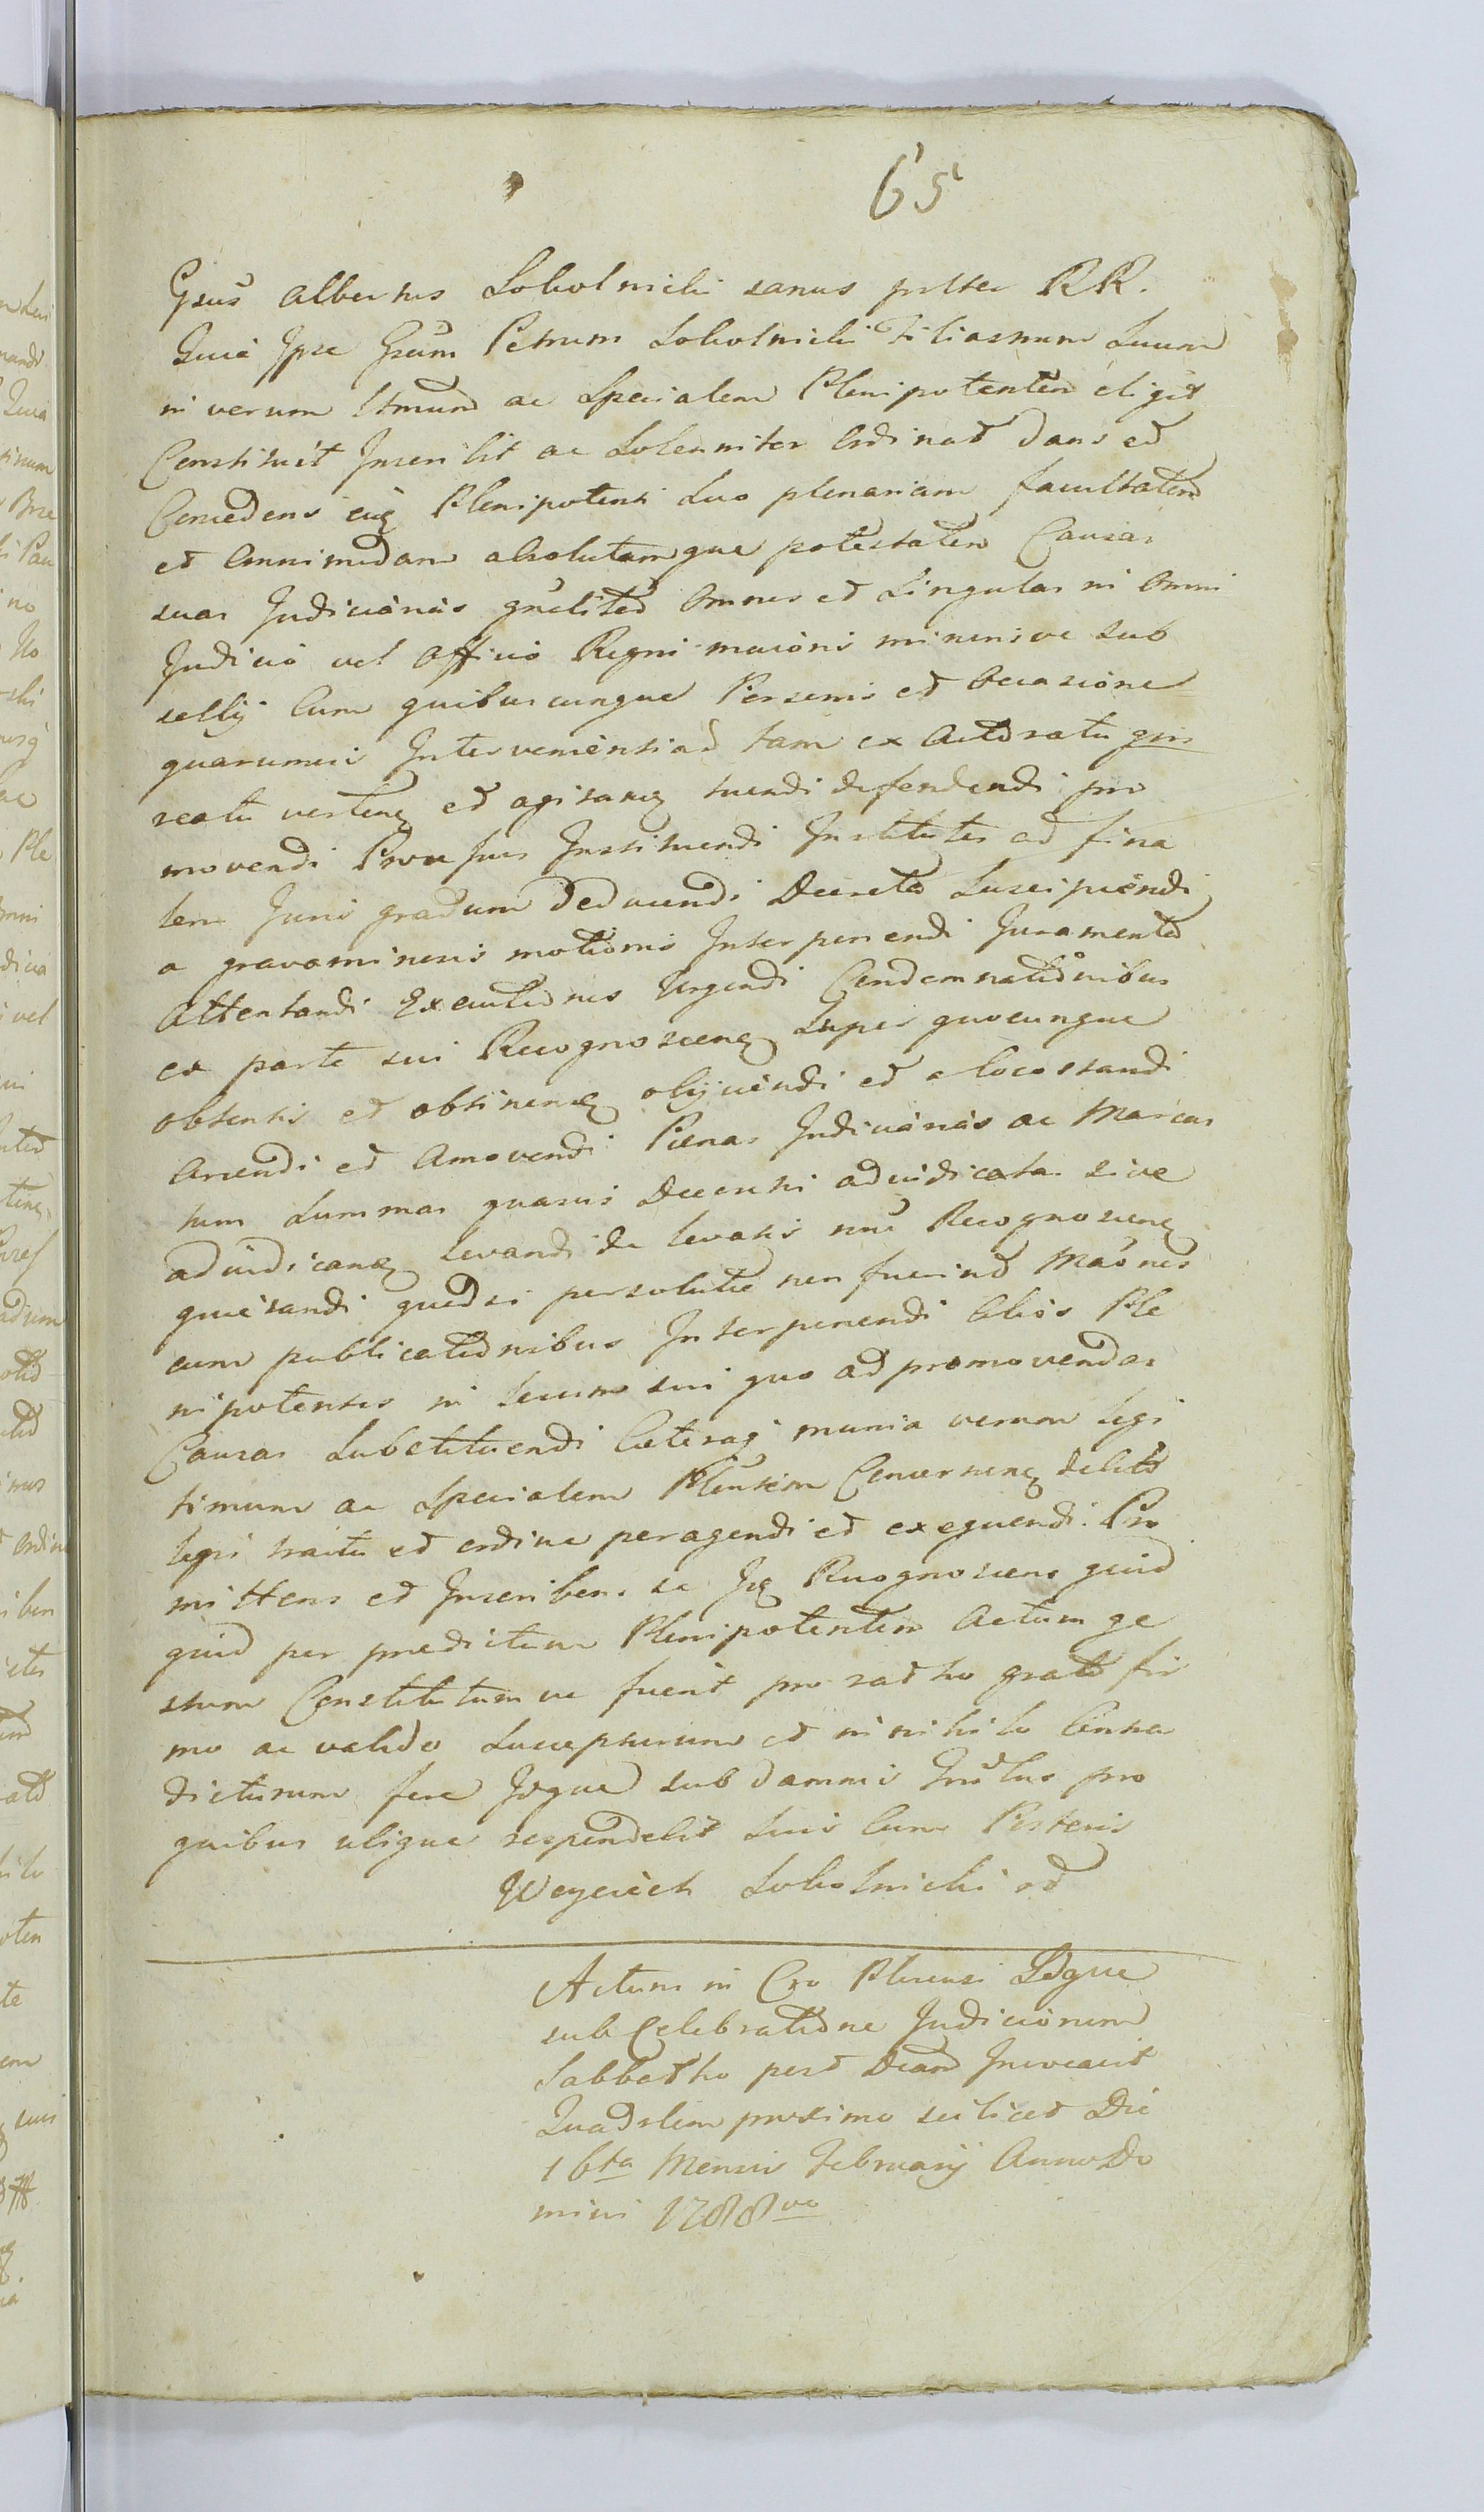 65
Gsus Albertus Sobolnicki sanus prtter RR.
Quia Ipse Gsum Petrum Sobolnicki Filiasnum Suum
in verum ltmum ac Specialem Plenipotentem eligit
Constituit Inscribit ac Solenniter Ordinat dans et
Concedens eidq Plenipotenti Suo plenariam facultatem
et Omnimodam absolutamque potestatem Causas
suas Judiciarias gnrlited Omnes et Singulas in Omni
Judicio vel Officio Regni maioris minorisve sub
sellij Cum quibuscunque Personis et Occasione
quarumvis Interveniential tam ex Actoratu qm
reatu verteng et agitang tuendi defendendi pro
movendi Processus Instituendi Institutes ad fina
lem Juris gradum deducendi Decreta Suscipiendi
a gravaminesis motiones Interponendi Juramenta
Attentandi Executiones Urgendi Condemnationibus
ex parte sui Recognosceng Super quocunque
obtentis et obtineng obijciendi et a locostandi
Arcendi et Amovendi Pœnas Judiciarias ac Marcas
tum Summas quasvis Decensi adiudicatas sive
adiudicang levandi de levatis nne Recognosceng
quietandi quodsi persolutæ non fuerint Maones
cum publicationibus Interponendi Alios Ple
nipotentes in locum sui quo ad promovendas
Causas Substituendi Cæteraq munia verum legi
timum ac Specialem Plentem Concerneng debito
legis tractu et ordine peragendi et exequendi. Pro
mittens et Inscribens se Jdq Recognoscens quid
quid per predictum Plenipotentem Actum ge
stum Constitutumve fuerit pro ratho grato fir
mo ac valido Suscepturum et in nihilo Contra
dicturum fore Idque sub damnis Trrlus pro
quibus ubique respondebit Suis Cum Posteris
Woyciech Sobolnicki
Actum in Cro Plcensi Sdque
sub Celebratione Judiciorum
Sabbatho post Dcam Invocavit
Quadrlem proximo scilicet Die
16ta Mensis Februarij Anno Do
mini 1788vo